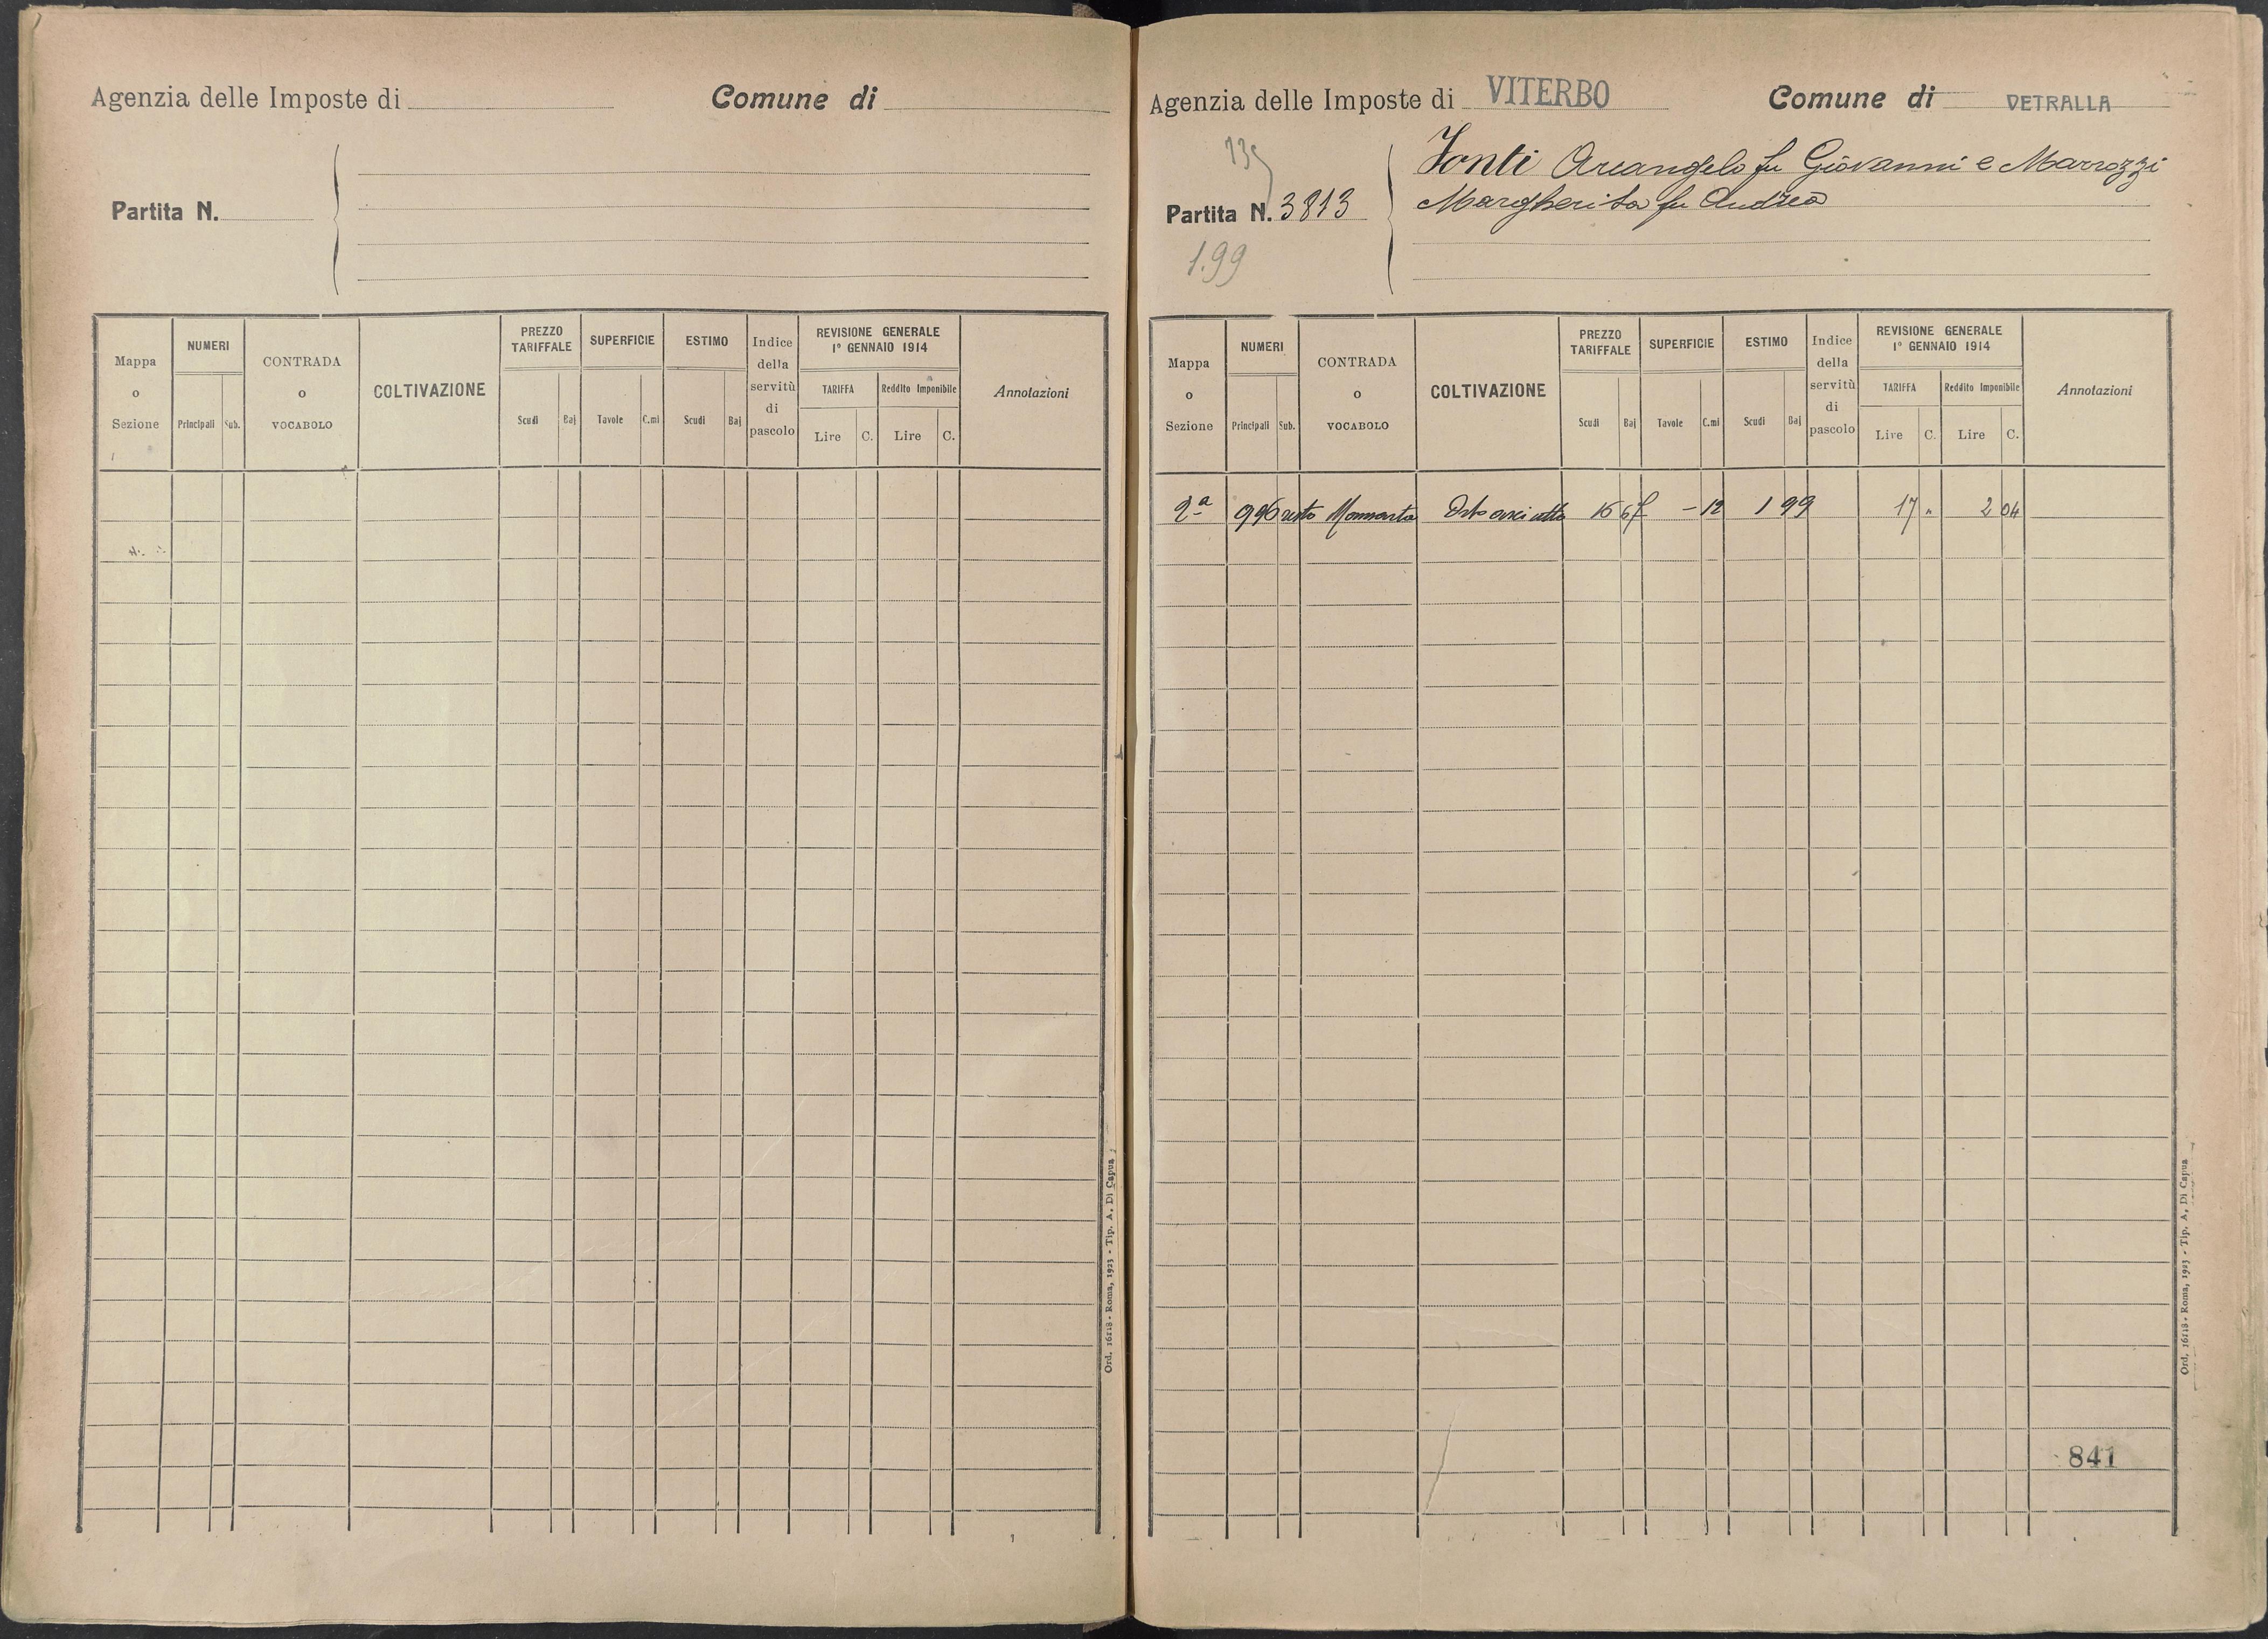 Agenzia delle Imposte di
Comune di
Partita N.
Mappa o Sezione
NUMERI
Principali
Sub.
CONTRADA o VOCABOLO
COLTIVAZIONE
PREZZO TARIFFALE
Scudi
Baj
SUPERFICIE
Tavole
C.mi
ESTIMO
Scudi
Baj
Indice della servitù di pascolo
REVISIONE GENERALE
1° GENNAIO 1914
TARIFFA
Lire
C.
Reddito Imponibile
Lire
C.
Annotazioni
Ord. 16118 - Roma, 1923 - Tip. A. Di Capua
Agenzia delle Imposte di VITERBO
Comune di VETRALLA
Partita N. 3813
1.99
Fonti Arcangelo fu Giovanni e Marrozzi
Margherita fu Andrea
Mappa o Sezione
NUMERI
Principali
Sub.
CONTRADA o VOCABOLO
COLTIVAZIONE
PREZZO TARIFFALE
Scudi
Baj
SUPERFICIE
Tavole
C.mi
ESTIMO
Scudi
Baj
Indice della servitù di pascolo
REVISIONE GENERALE
1° GENNAIO 1914
TARIFFA
Lire
C.
Reddito Imponibile
Lire
C.
Annotazioni
2ª 996 resto Orto asciutto - 12 1 99 17 " 2 04
841
Ord. 16118 - Roma, 1923 - Tip. A. Di Capua